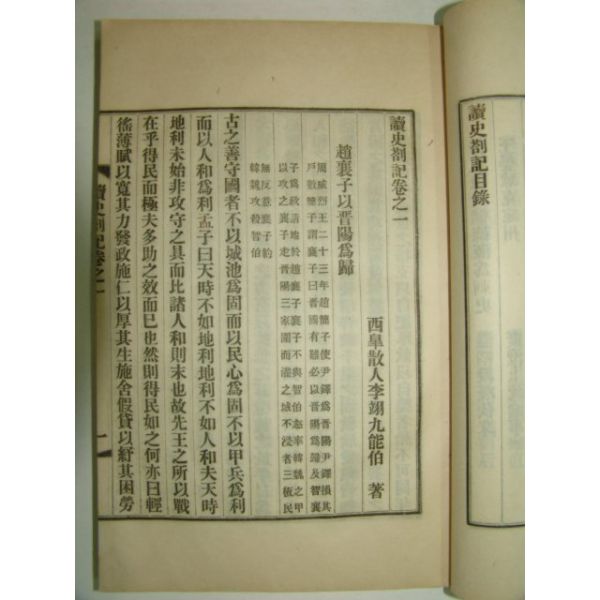 讀史劄記目錄
讀史劄記卷之一
西皐散人李翊九能伯 著
趙襄子以晋陽爲歸
周威烈王二十三年趙簡子使尹鐸爲晋陽尹鐸損其
戶數簡子謂襄子曰晋國有難必以晋陽爲歸及智襄
子爲政請地於趙襄子襄子不與智伯怒率韓魏之甲
以攻之襄子走晋陽三家圍而灌之城不浸者三板民
無反意襄子約
韓魏攻殺智伯
古之善守國者不以城池爲固而以民心爲固不以甲兵爲利
而以人和爲利孟子曰天時不如地利地利不如人和夫天時
地利未始非攻守之具而比諸人和則末也故先王之所以戰
在乎得民而極夫多助之效而已也然則得民如之何亦曰輕
徭薄賦以寬其力發政施仁以厚其生施舍假貸以紓其困勞
讀史劄記卷之一
一